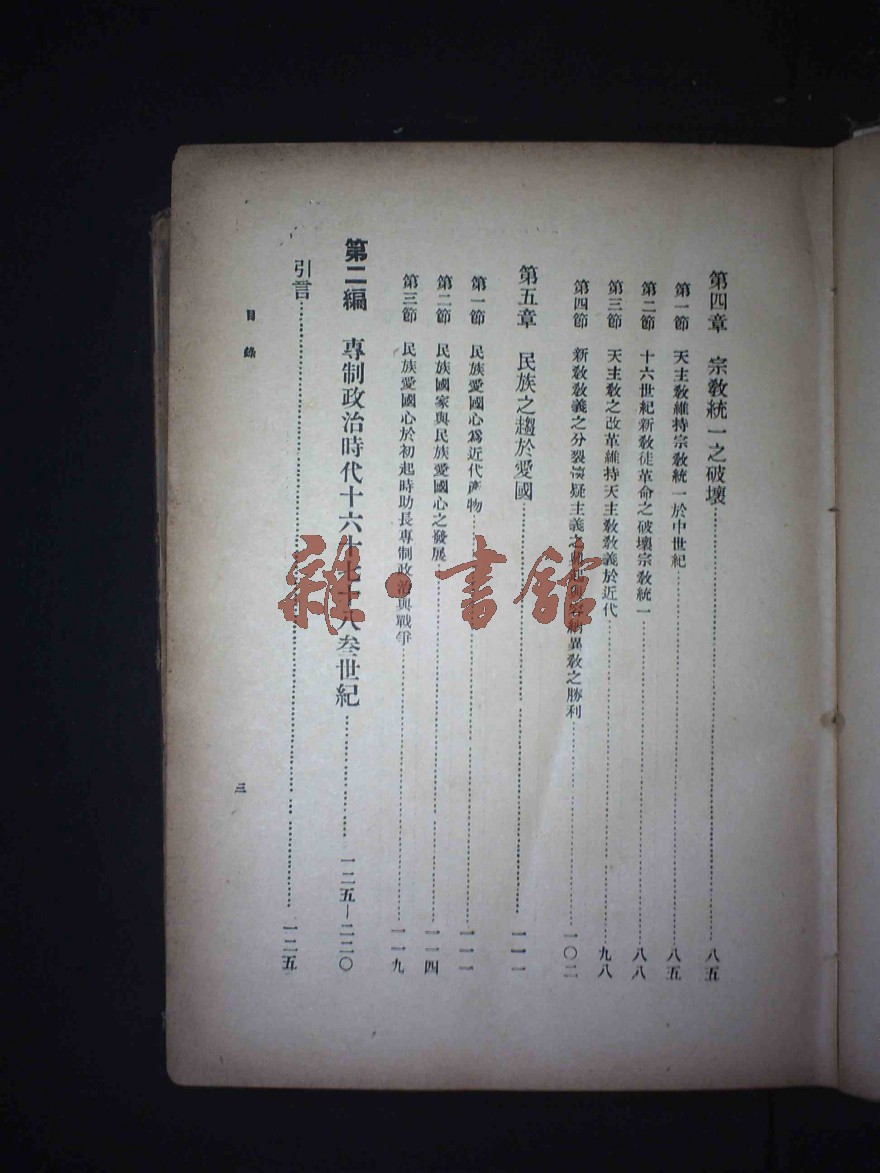 第四章　宗教統一之破壞……八五
第一節　天主教維持宗教統一於中世紀……八五
第二節　十六世紀新教徒革命之破壞宗教統一……八八
第三節　天主教之改革維持天主教教義於近代……九八
第四節　新教教義之分裂懷疑主義之異教之勝利……一〇二
第五章　民族之趨於愛國……一一一
第一節　民族愛國心爲近代產物……一一一
第二節　民族國家與民族愛國心之發展……一一四
第三節　民族愛國心於初起時助長專制政治與戰爭……一一九
第二編　專制政治時代十六十七十八叁世紀……一二五—二二〇
引言……一二五
目錄
三
雜·書館